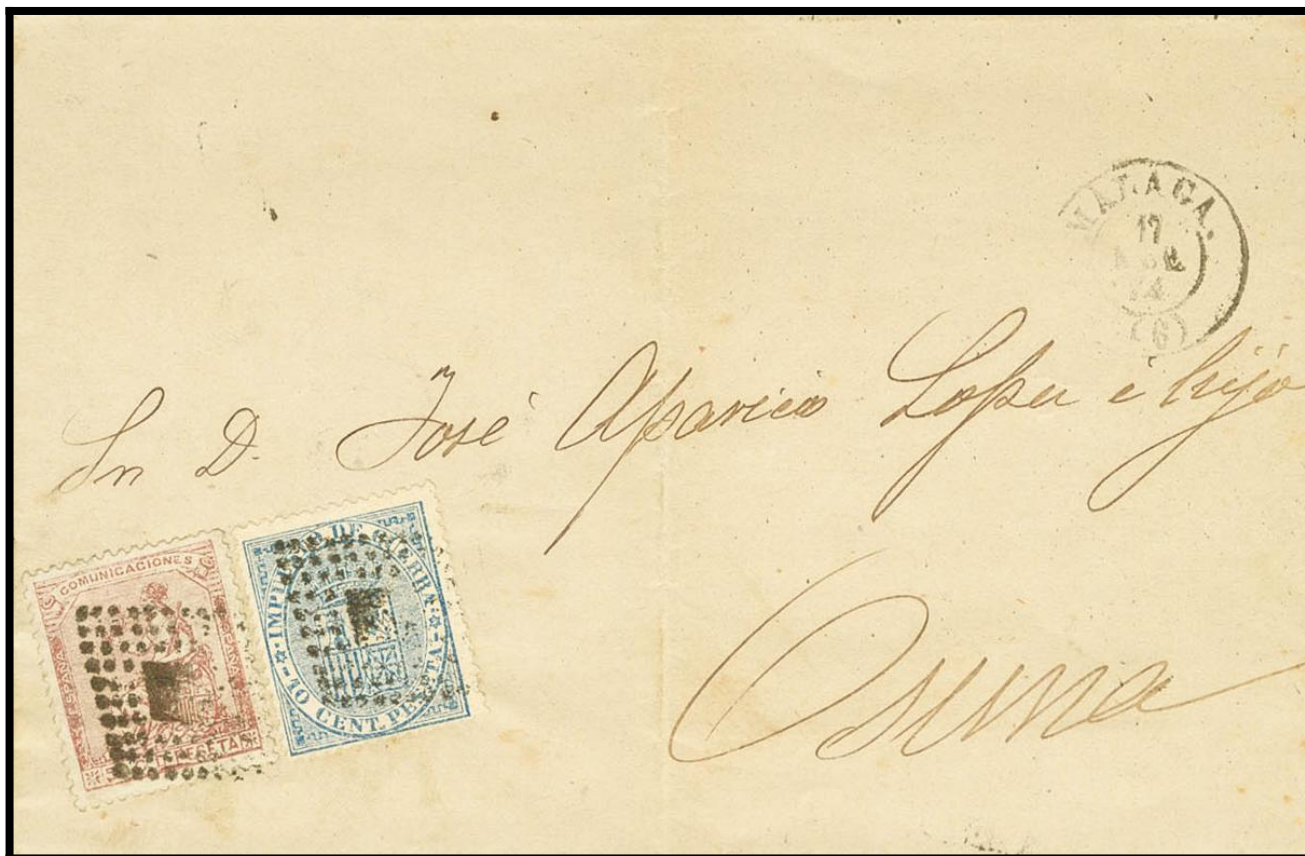 MALAGA.
17
74
(6)
Sr D. José Aparicio Lopez é hijo
Osuna
COMUNICACIONES
ESPAÑA
ESPAÑA
PESETA
IMPTO DE GUERRA
10 CENT. PESETA